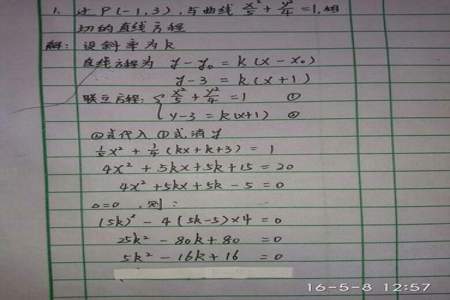 1. 过P(-1,3),与曲线 x²/5 + y²/4 = 1,相
切的直线方程
解: 设斜率为k
直线方程为 y-y₀ = k(x-x₀)
y-3 = k(x+1)
联立方程: { x²/5 + y²/4 = 1 ①
y-3 = k(x+1) ②
②式代入①式消y
1/5x² + 1/4(kx+k+3) = 1
4x² + 5kx + 5k + 15 = 20
4x² + 5kx + 5k - 5 = 0
△=0 ,则:
(5k)² - 4(5k-5)×4 = 0
25k² - 80k + 80 = 0
5k² - 16k + 16 = 0
16-5-8 12:57